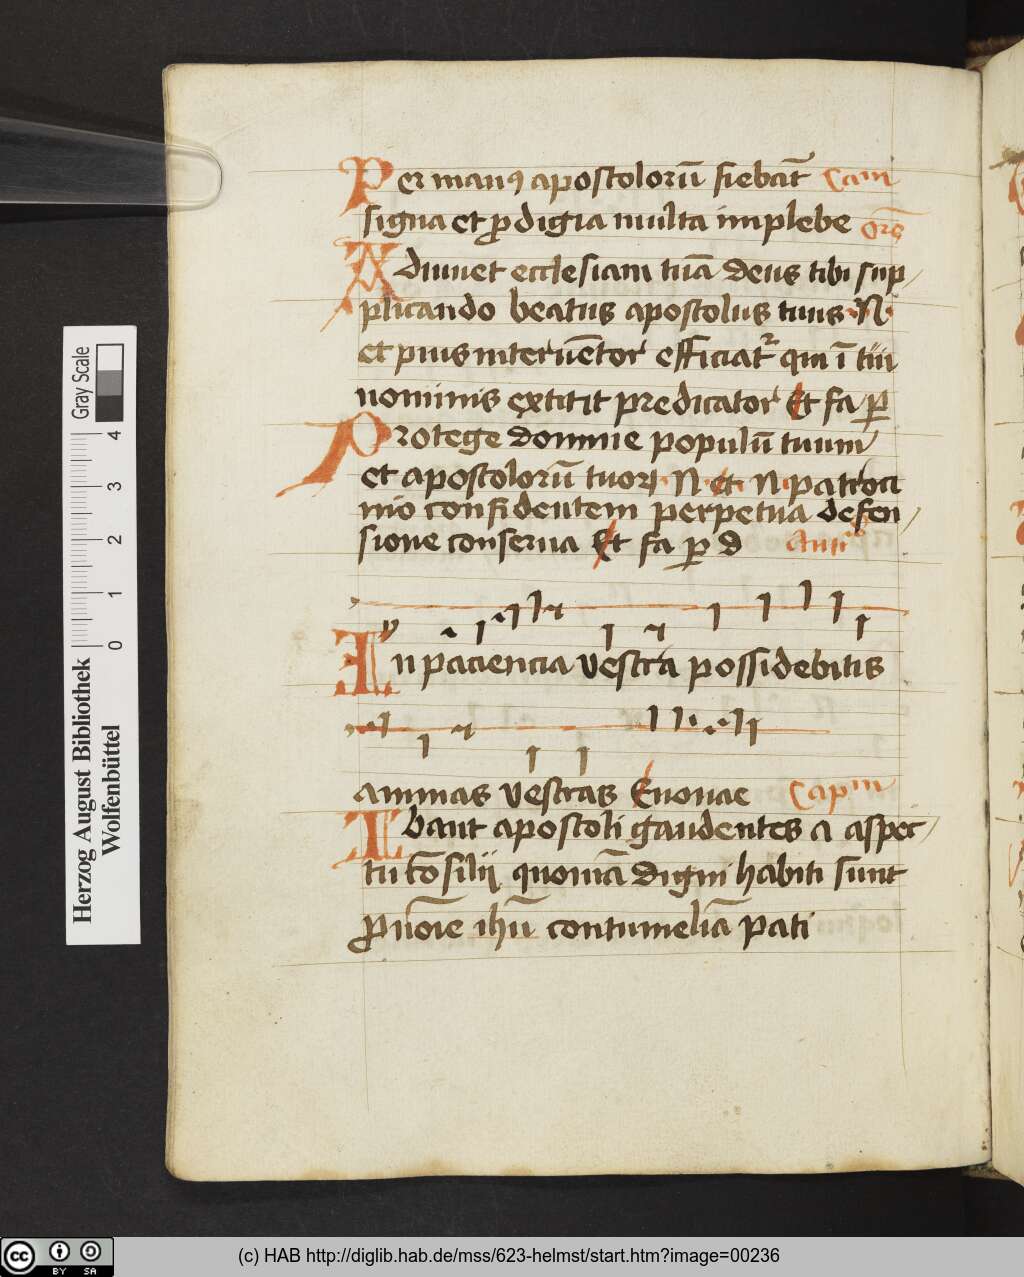 Per manꝰ apostolorū fiebāt Cam
signa et ꝓdigia multa in implebe Orō
Adiuuet ecclesiam tuā deus tibi sup
plicando beatus apostolus tuus ·N·
et pius interuētor efficiat᷑ qui ī tui
nominis extitit predicator Et fa ꝑ
Protege domine populū tuum
et apostolorū tuorꝝ ·N· et N· patroci
nio confidentem perpetua defen
sione conserua Et fa ꝑ d Anti
In paciencia vestra possidebitis
animas vestras Euouae Capm
Ibant apostoli gaudentes a aspec
tu cōsilij quoniā digni habiti sunt
ꝓ nōie ihū contumeliā pati
Herzog August Bibliothek
Wolfenbüttel
0 1 2 3 4
Gray Scale
cc BY SA
(c) HAB http://diglib.hab.de/mss/623-helmst/start.htm?image=00236